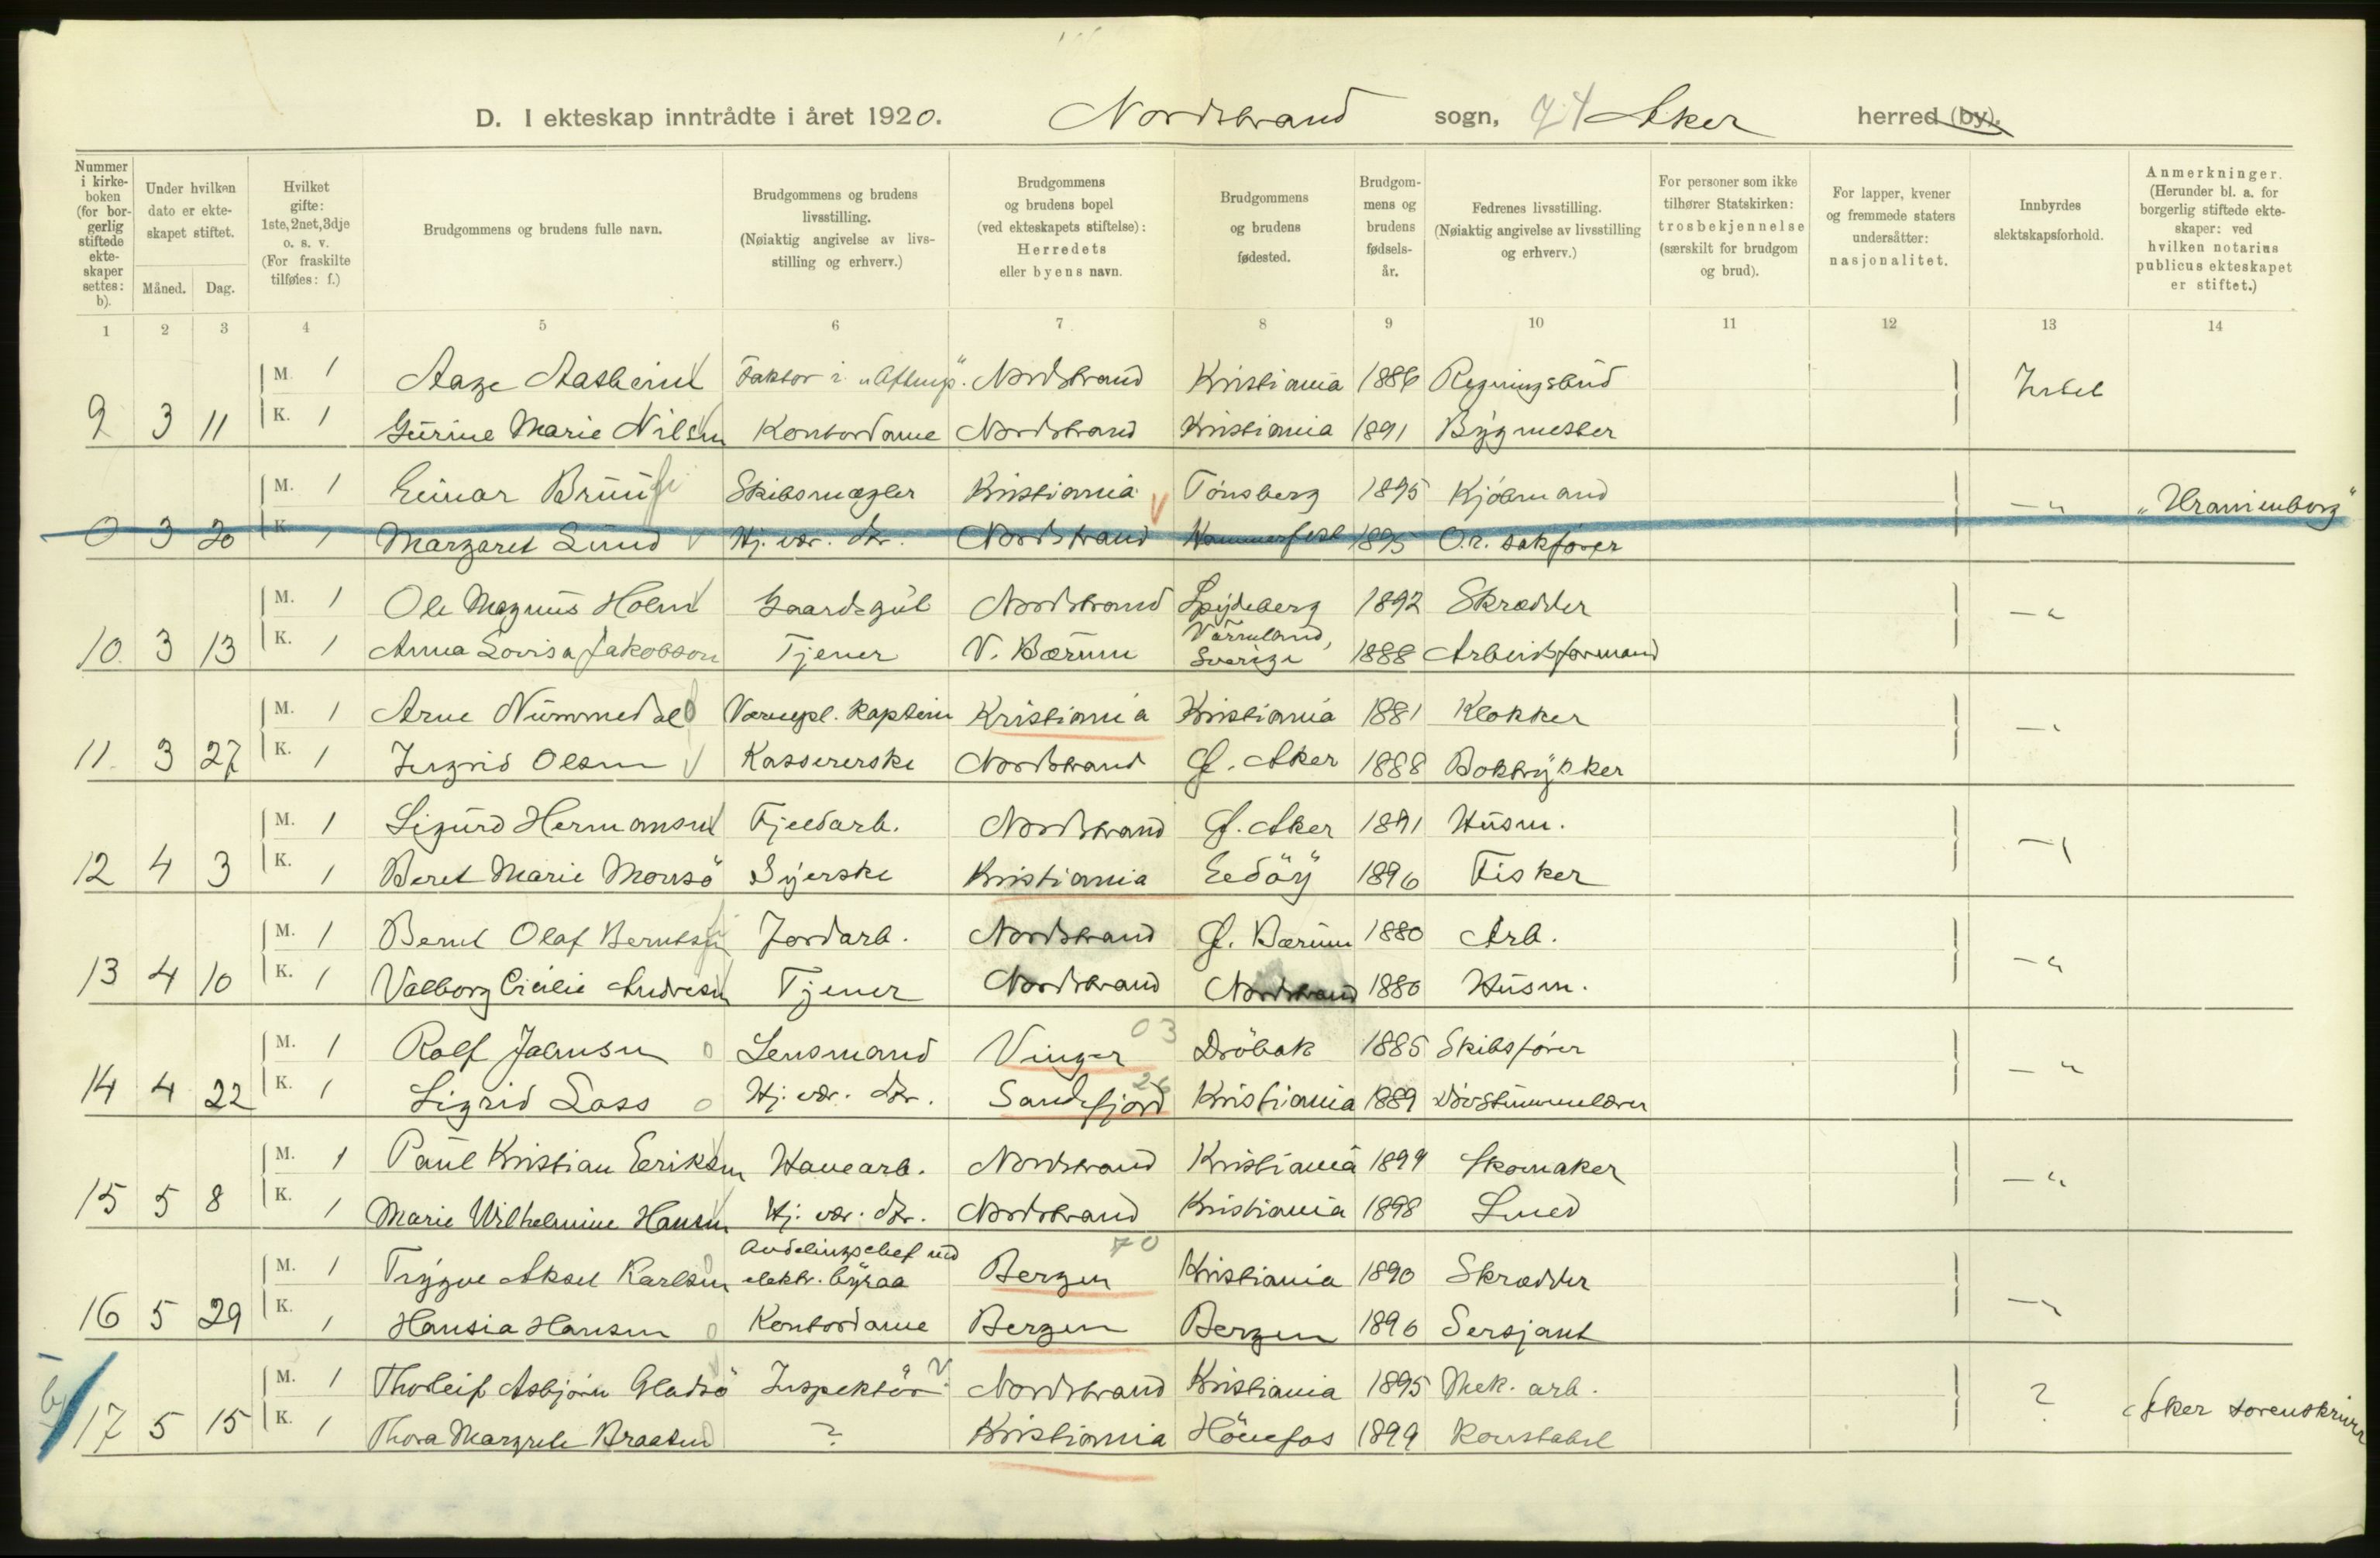 D. I ekteskap inntrådte i året 1920. Nordstrand sogn, 74 Aker herred (by).
Nummer i kirkeboken (for borgerlig stiftede ekteskaper settes: b).
Under hvilken dato er ekteskapet stiftet.
Måned. Dag.
Hvilket gifte: 1ste, 2net, 3dje o. s. v. (For fraskilte tilføies: f.)
Brudgommens og brudens fulle navn.
Brudgommens og brudens livsstilling. (Nøiaktig angivelse av livsstilling og erhverv.)
Brudgommens og brudens bopel (ved ekteskapets stiftelse): Herredets eller byens navn.
Brudgommens og brudens fødested.
Brudgommens og brudens fødselsår.
Fedrenes livsstilling. (Nøiaktig angivelse av livsstilling og erhverv.)
For personer som ikke tilhører Statskirken: trosbekjennelse (særskilt for brudgom og brud).
For lapper, kvener og fremmede staters undersåtter: nasjonalitet.
Innbyrdes slektskapsforhold.
Anmerkninger. (Herunder bl. a. for borgerlig stiftede ekteskaper: ved hvilken notarius publicus ekteskapet er stiftet.)
1 2 3 4 5 6 7 8 9 10 11 12 13 14
M. 1 Aage Aasheim Faktor i "Aftenp". Nordstrand Kristiania 1886 Regningsbud Intet
9 3 11 K. 1 Gurine Marie Nilsen Kontordame Nordstrand Kristiania 1891 Bygmester
M. 1 Einar Bruu Skibsmægler Kristiania Tönsberg 1895 Kjöbmand -"- "Uranienborg"
0 3 20 K. 1 Margaret Lund Hj. vær. dtr. Nordstrand Hammerfest 1895 O.r. sakförer
M. 1 Ole Magnus Holm Gaardsgut Nordstrand Spydeberg 1892 Skrædder -"-
10. 3 13 K. 1 Anna Lovisa Jakobson Tjener V. Bærum Värmland, Sverige 1888 Arbeidsformand
M. 1 Arne Nummedal Vernepl. kaptein Kristiania Kristiania 1881 Klokker -"-
11. 3 27 K. 1 Ingrid Olsen Kassererske Nordstrand Ø. Aker 1888 Boktrykker
M. 1 Sigurd Hermansen Fjeldarb. Nordstrand Ø. Aker 1891 Husm. -"-
12 4 3 K. 1 Beret Marie Monsö Syerske Kristiania Edöy 1896 Fisker
M. 1 Bernt Olaf Berntsen Jordarb. Nordstrand Ø. Bærum 1880 Arb. -"-
13 4 10 K. 1 Valborg Cicilie Andresen Tjener Nordstrand Nordstrand 1880 Husm.
M. 1 Rolf Jahnsen Lensmand Vinger 03 Dröbak 1885 Skibsförer -"-
14 4 22 K. 1 Sigrid Lass Hj. vær. dtr. Sandefjord Kristiania 1889 Dövstummelærer
M. 1 Paul Kristian Eriksen Havearb. Nordstrand Kristiania 1899 Skomaker -"-
15 5 8 K. 1 Marie Wilhelmine Hansen Hj. vær. dtr. Nordstrand Kristiania 1898 Smed
M. 1 Trygve Aksel Karlsen Avdelingschef ved elektr. byraa Bergen 70 Kristiania 1890 Skrædder -"-
16 5 29 K. 1 Hansia Hansen Kontordame Bergen Bergen 1896 Sersjant
M. 1 Thorleif Asbjörn Gladsö Inspektör ? Nordstrand Kristiania 1895 Mek. arb. ? Aker sorenskriver
b 17 5 15 K. 1 Thora Margrete Braaten ? Kristiania Hönefos 1899 Konstabel